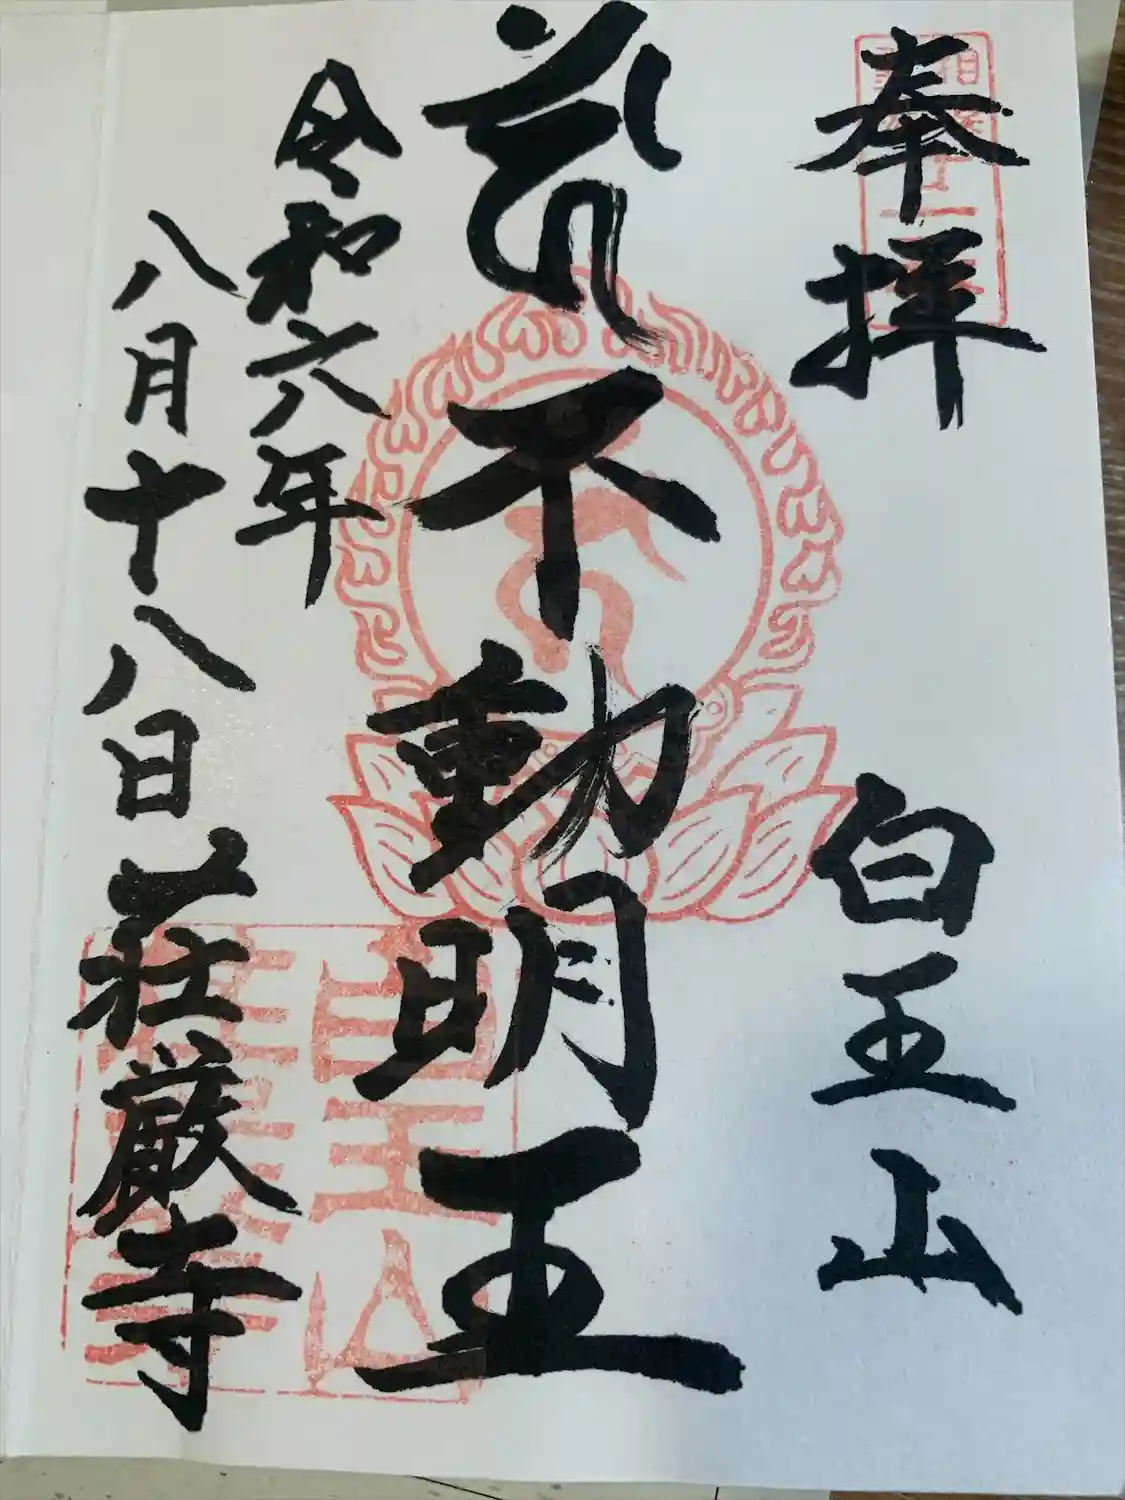 奉拝
白王山
不動明王
令和六年
八月十八日
荘厳寺
白王山